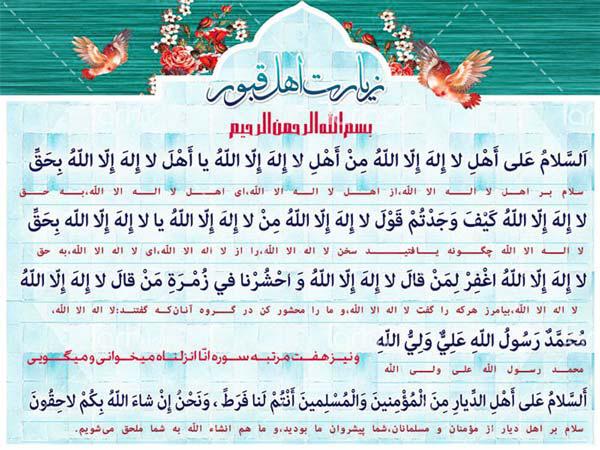 زیارت اهل قبور
بسم الله الرحمن الرحیم
اَلسَّلامُ عَلى اَهْلِ لا اِلهَ اِلَّا اللَّهُ مِنْ اَهْلِ لا اِلهَ اِلَّا اللَّهُ یا اَهْلَ لا اِلهَ اِلَّا اللَّهُ بِحَقِّ
سلام بر اهل لا اله الا الله،از اهل لا اله الا الله،ای اهل لا اله الا الله،به حق
لا اِلهَ اِلَّا اللَّهُ كَیْفَ وَجَدْتُمْ قَوْلَ لا اِلهَ اِلَّا اللَّهُ مِنْ لا اِلهَ اِلَّا اللَّهُ یا لا اِلهَ اِلَّا اللَّهُ بِحَقِّ
لا اله الا الله چگونه یافتید سخن لا اله الا الله،را از لا اله الا الله،ای لا اله الا الله،به حق
لا اِلهَ اِلَّا اللَّهُ اغْفِرْ لِمَنْ قالَ لا اِلهَ اِلَّا اللَّهُ وَ احْشُرْنا في زُمْرَةِ مَنْ قالَ لا اِلهَ اِلَّا اللَّهُ
لا اله الا الله،بیامرز هرکه را گفت لا اله الا الله،و ما را محشور کن در گروه آنان‌که گفتند:لا اله الا الله،
مُحَمَّدٌ رَسُولُ اللَّهِ عَلِيٌّ وَلِيُّ اللَّهِ
و نیز هفت مرتبه سوره انّا انزلناه میخوانی و میگویی
محمد رسول الله علی ولی الله
أَلسَّلامُ عَلى أَهْلِ الدِّيارِ مِنَ الْمُؤْمِنينَ وَالْمُسْلِمينَ أَنْتُمْ لَنا فَرَطٌ ، وَنَحْنُ إِنْ شاءَ اللَّهُ بِكُمْ لاحِقُونَ
سلام بر اهل دیار از مؤمنان و مسلمانان،شما پیشروان ما بودید،و ما هم انشاء الله به شما ملحق می‌شویم.